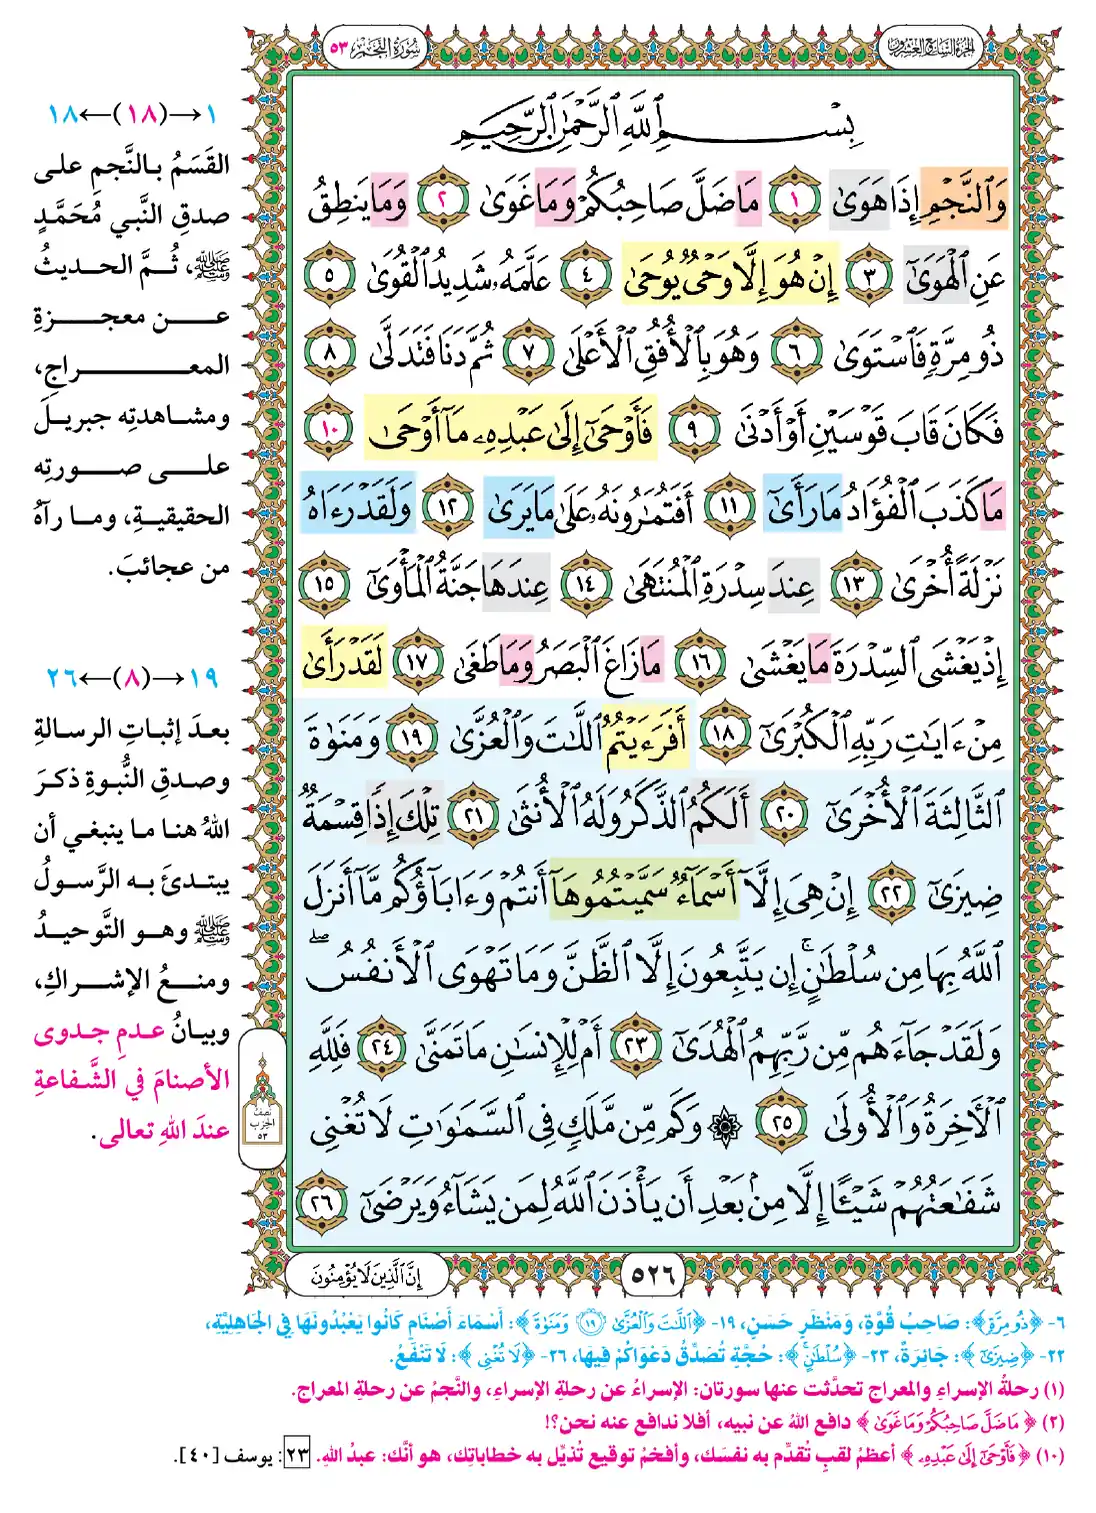 الجزء السابع والعشرون
سُورَةُ النَّجْمِ ٥٣
بِسْمِ ٱللَّهِ ٱلرَّحْمَٰنِ ٱلرَّحِيمِ
وَٱلنَّجْمِ إِذَا هَوَىٰ ١ مَا ضَلَّ صَاحِبُكُمْ وَمَا غَوَىٰ ٢ وَمَا يَنطِقُ
عَنِ ٱلْهَوَىٰٓ ٣ إِنْ هُوَ إِلَّا وَحْىٌ يُوحَىٰ ٤ عَلَّمَهُۥ شَدِيدُ ٱلْقُوَىٰ ٥
ذُو مِرَّةٍ فَٱسْتَوَىٰ ٦ وَهُوَ بِٱلْأُفُقِ ٱلْأَعْلَىٰ ٧ ثُمَّ دَنَا فَتَدَلَّىٰ ٨
فَكَانَ قَابَ قَوْسَيْنِ أَوْ أَدْنَىٰ ٩ فَأَوْحَىٰٓ إِلَىٰ عَبْدِهِۦ مَآ أَوْحَىٰ ١٠
مَا كَذَبَ ٱلْفُؤَادُ مَا رَأَىٰٓ ١١ أَفَتُمَٰرُونَهُۥ عَلَىٰ مَا يَرَىٰ ١٢ وَلَقَدْ رَءَاهُ
نَزْلَةً أُخْرَىٰ ١٣ عِندَ سِدْرَةِ ٱلْمُنتَهَىٰ ١٤ عِندَهَا جَنَّةُ ٱلْمَأْوَىٰٓ ١٥
إِذْ يَغْشَى ٱلسِّدْرَةَ مَا يَغْشَىٰ ١٦ مَا زَاغَ ٱلْبَصَرُ وَمَا طَغَىٰ ١٧ لَقَدْ رَأَىٰ
مِنْ ءَايَٰتِ رَبِّهِ ٱلْكُبْرَىٰٓ ١٨ أَفَرَءَيْتُمُ ٱللَّٰتَ وَٱلْعُزَّىٰ ١٩ وَمَنَوٰةَ
ٱلثَّالِثَةَ ٱلْأُخْرَىٰٓ ٢٠ أَلَكُمُ ٱلذَّكَرُ وَلَهُ ٱلْأُنثَىٰ ٢١ تِلْكَ إِذًا قِسْمَةٌ
ضِيزَىٰٓ ٢٢ إِنْ هِىَ إِلَّآ أَسْمَآءٌ سَمَّيْتُمُوهَآ أَنتُمْ وَءَابَآؤُكُم مَّآ أَنزَلَ
ٱللَّهُ بِهَا مِن سُلْطَٰنٍ ۚ إِن يَتَّبِعُونَ إِلَّا ٱلظَّنَّ وَمَا تَهْوَى ٱلْأَنفُسُ ۖ
وَلَقَدْ جَآءَهُم مِّن رَّبِّهِمُ ٱلْهُدَىٰٓ ٢٣ أَمْ لِلْإِنسَٰنِ مَا تَمَنَّىٰ ٢٤ فَلِلَّهِ
ٱلْءَاخِرَةُ وَٱلْأُولَىٰ ٢٥ ۞ وَكَم مِّن مَّلَكٍ فِى ٱلسَّمَٰوَٰتِ لَا تُغْنِى
شَفَٰعَتُهُمْ شَيْـًٔا إِلَّا مِنۢ بَعْدِ أَن يَأْذَنَ ٱللَّهُ لِمَن يَشَآءُ وَيَرْضَىٰٓ ٢٦
١→(١٨)←١٨
القَسَمُ بالنَّجمِ على
صدقِ النَّبي مُحَمَّدٍ
ﷺ، ثُمَّ الحديثُ
عن معجزةِ
المعراجِ،
ومشاهدتِه جبريلَ
على صورتِه
الحقيقيةِ، وما رآهُ
من عجائبَ.
١٩→(٨)←٢٦
بعدَ إثباتِ الرسالةِ
وصدقِ النُّبوةِ ذكرَ
اللهُ هنا ما ينبغي أن
يبتدئَ به الرَّسولُ
ﷺ وهو التَّوحيدُ
ومنعُ الإشراكِ،
وبيانُ عدمِ جدوى
الأصنامِ في الشَّفاعةِ
عندَ اللهِ تعالى.
نصف
الحزب
٥٣
٥٢٦
إِنَّ ٱلَّذِينَ لَا يُؤْمِنُونَ
٦- ﴿ذُو مِرَّةٍ﴾: صَاحِبُ قُوَّةٍ، وَمَنْظَرٍ حَسَنٍ، ١٩- ﴿ٱللَّٰتَ وَٱلْعُزَّىٰ ١٩ وَمَنَوٰةَ﴾: أَسْمَاءُ أَصْنَامٍ كَانُوا يَعْبُدُونَهَا فِي الجَاهِلِيَّةِ،
٢٢- ﴿ضِيزَىٰٓ﴾: جَائِرَةٌ، ٢٣- ﴿سُلْطَٰنٍ﴾: حُجَّةٍ تُصَدِّقُ دَعْوَاكُمْ فِيهَا، ٢٦- ﴿لَا تُغْنِى﴾: لَا تَنْفَعُ.
(١) رحلةُ الإسراءِ والمعراجِ تحدَّثت عنها سورتان: الإسراءُ عن رحلةِ الإسراءِ، والنَّجمُ عن رحلةِ المعراجِ.
(٢) ﴿مَا ضَلَّ صَاحِبُكُمْ وَمَا غَوَىٰ﴾ دافع اللهُ عن نبيه، أفلا ندافع عنه نحن؟!
(١٠) ﴿فَأَوْحَىٰٓ إِلَىٰ عَبْدِهِۦ﴾ أعظمُ لقبٍ تُقدِّم به نفسَك، وأفخمُ توقيعٍ تُذيِّل به خطاباتِك، هو أنَّك: عبدُ اللهِ. ٢٣: يوسف [٤٠].